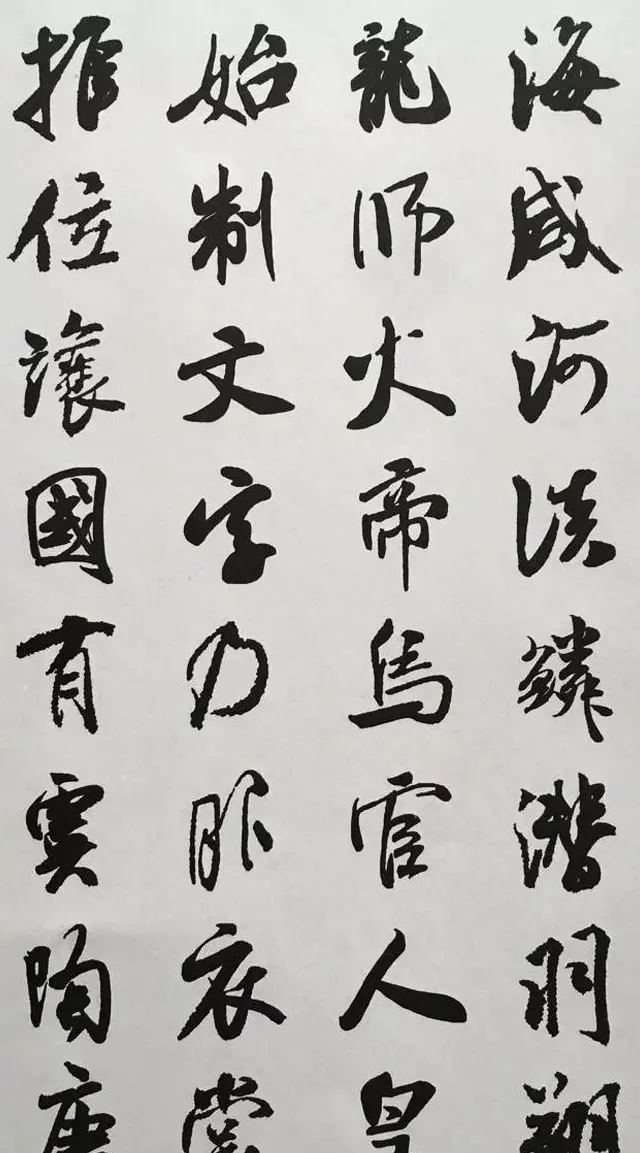 海咸河淡鱗潛羽翔
龍師火帝鳥官人皇
始制文字乃服衣裳
推位讓國有虞陶唐